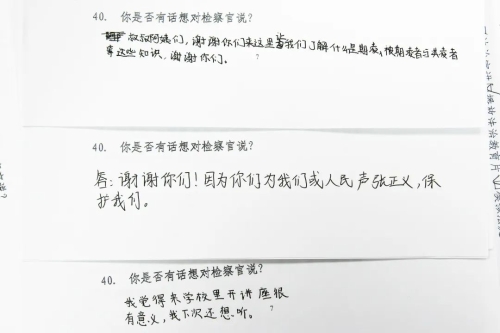 40. 你是否有话想对检察官说?
叔叔阿姨们,谢谢你们来这里告我们了解什么是
等这些知识,谢谢你们。
40. 你是否有话想对检察官说?
答:谢谢你们!因为你们为我们或人民声张正义,保
护我们。
40. 你是否有话想对检察官说?
我觉得来学校里开讲座很
有意义,我下次还想听。